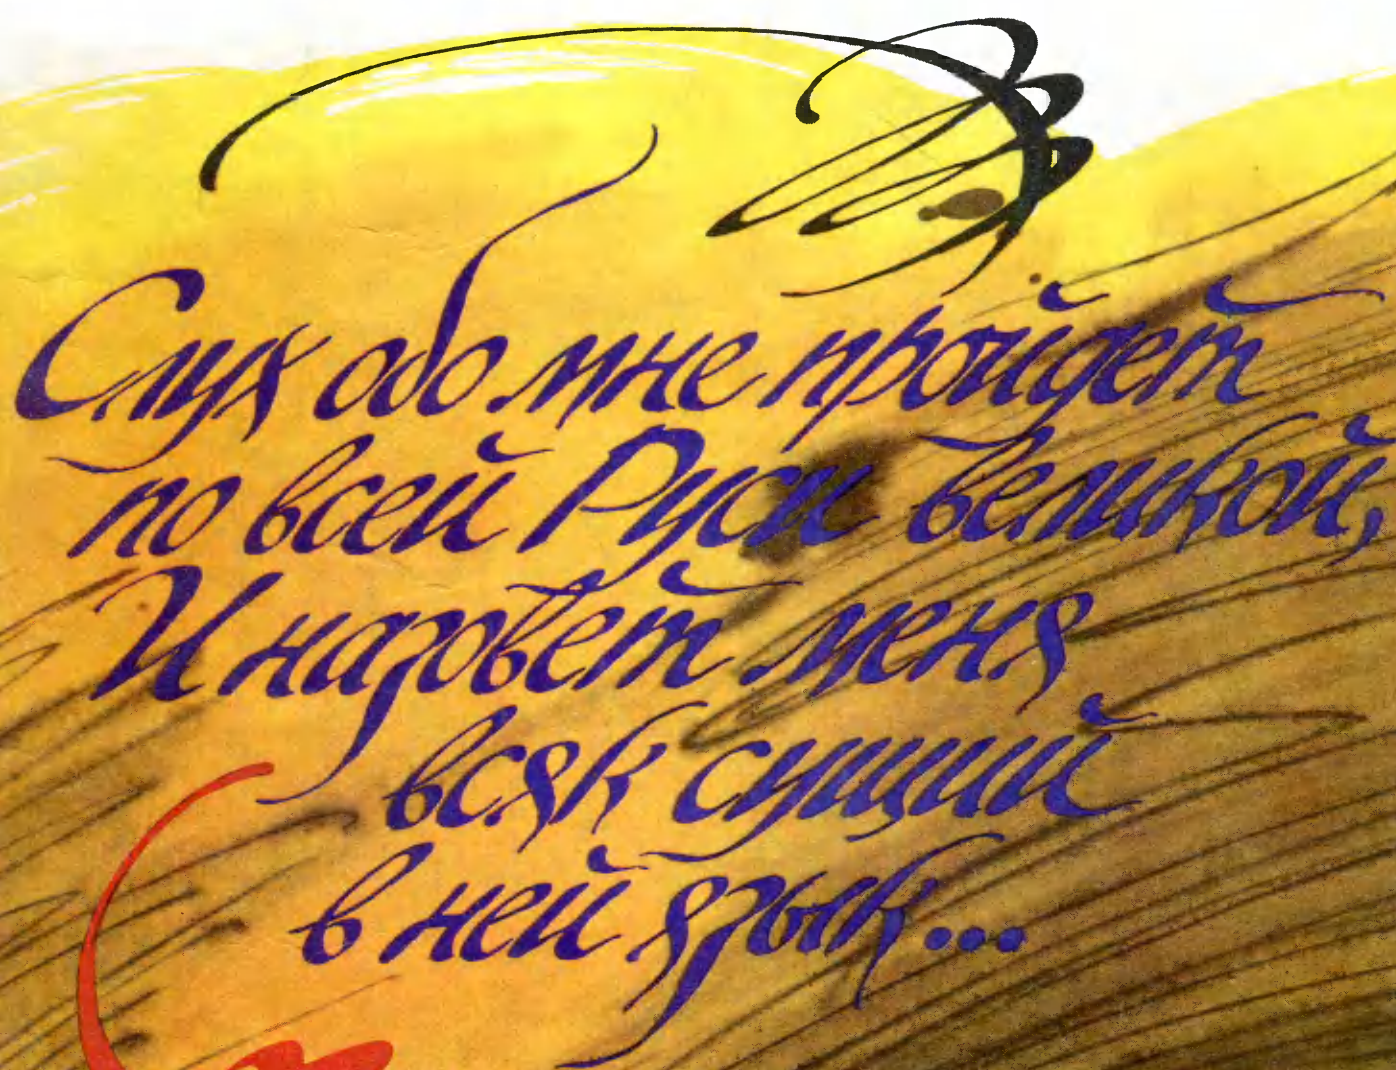 Слух обо мне пройдет
по всей Руси великой,
И назовет меня
всяк сущий
в ней язык...